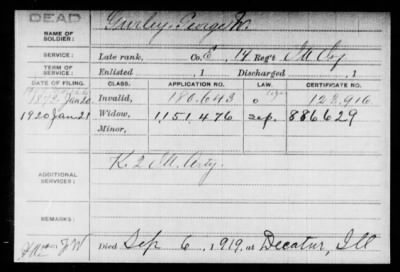 DEAD
NAME OF SOLDIER: Gurley, George W.
SERVICE: Late rank, Co. E, 14 Reg't Ill Cav
TERM OF SERVICE: Enlisted , 1 Discharged , 1
DATE OF FILING. CLASS. APPLICATION NO. LAW. CERTIFICATE NO.
1872 Jan 20 Invalid, 180.643 o 128.916
1920 Jan 21 Widow, 1,151.476 sep. 886629
Minor,
ADDITIONAL SERVICES: K. 2 Ill. Arty.
REMARKS:
Died Sep 6, 1919, at Decatur, Ill